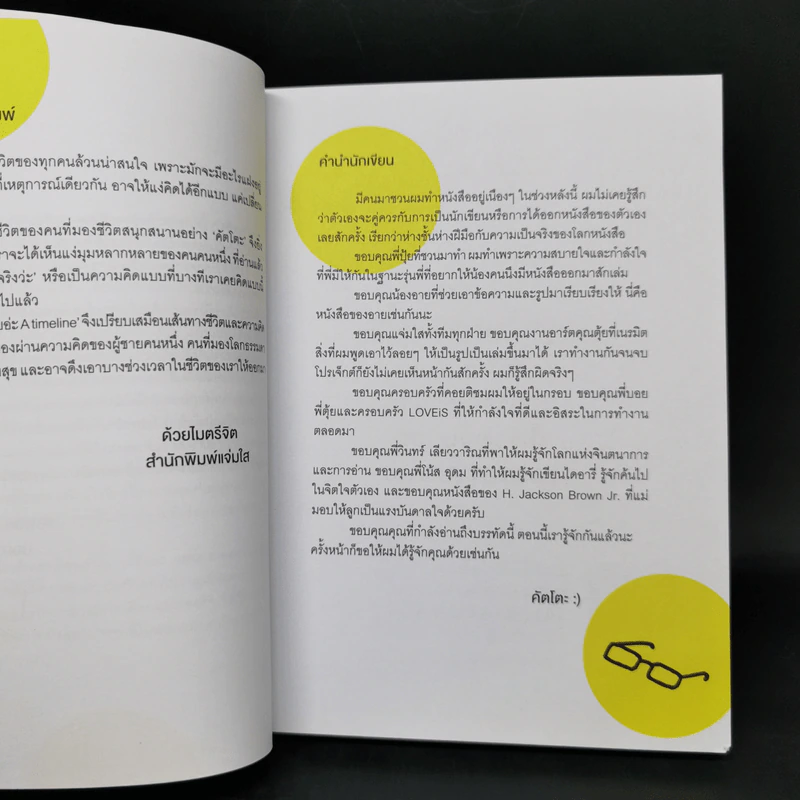 พ์
ชีวิตของทุกคนล้วนน่าสนใจ เพราะมักจะมีอะไรแฝงอยู่
ที่เหตุการณ์เดียวกัน อาจให้แง่คิดได้อีกแบบ แค่เปลี่ยน
ชีวิตของคนที่มองชีวิตสนุกสนานอย่าง 'คัตโตะ' จึงยิ่ง
ราจะได้เห็นแง่มุมหลากหลายของคนคนหนึ่ง ที่อ่านแล้ว
จริงว่ะ' หรือเป็นความคิดแบบที่บางทีเราเคยคิดแบบนี้
ไปแล้ว
A timeline' จึงเปรียบเสมือนเส้นทางชีวิตและความคิด
องผ่านความคิดของผู้ชายคนหนึ่ง คนที่มองโลกธรรมดา
สุข และอาจดึงเอาบางช่วงเวลาในชีวิตของเราให้ออกมา
ด้วยไมตรีจิต
สำนักพิมพ์แจ่มใส
คำนำนักเขียน
มีคนมาชวนผมทำหนังสืออยู่เนืองๆ ในช่วงหลังนี้ ผมไม่เคยรู้สึก
ว่าตัวเองจะคู่ควรกับการเป็นนักเขียนหรือการได้ออกหนังสือของตัวเอง
เลยสักครั้ง เรียกว่าห่างชั้นห่างฝีมือกับความเป็นจริงของโลกหนังสือ
ขอบคุณพี่ปุ้ยที่ชวนมาทำ ผมทำเพราะความสบายใจและกำลังใจ
ที่พี่มีให้กันในฐานะรุ่นพี่ที่อยากให้น้องคนนึงมีหนังสือออกมาสักเล่ม
ขอบคุณน้องอายที่ช่วยเอาข้อความและรูปมาเรียบเรียงให้ นี่คือ
หนังสือของอายเช่นกันนะ
ขอบคุณแจ่มใสทั้งทีมทุกฝ่าย ขอบคุณงานอาร์ตคุณตุ้ยที่เนรมิต
สิ่งที่ผมพูดเอาไว้ลอยๆ ให้เป็นรูปเป็นเล่มขึ้นมาได้ เราทำงานกันจนจบ
โปรเจ็กต์ก็ยังไม่เคยเห็นหน้ากันสักครั้ง ผมก็รู้สึกผิดจริงๆ
ขอบคุณครอบครัวที่คอยติชมผมให้อยู่ในกรอบ ขอบคุณพี่บอย
พี่ตุ้ยและครอบครัว LOVEiS ที่ให้กำลังใจที่ดีและอิสระในการทำงาน
ตลอดมา
ขอบคุณพี่วินทร์ เลียววาริณที่พาให้ผมรู้จักโลกแห่งจินตนาการ
และการอ่าน ขอบคุณพี่โน้ส อุดม ที่ทำให้ผมรู้จักเขียนไดอารี่ รู้จักค้นไป
ในจิตใจตัวเอง และขอบคุณหนังสือของ H. Jackson Brown Jr. ที่แม่
มอบให้ลูกเป็นแรงบันดาลใจด้วยครับ
ขอบคุณคุณที่กำลังอ่านถึงบรรทัดนี้ ตอนนี้เรารู้จักกันแล้วนะ
ครั้งหน้าก็ขอให้ผมได้รู้จักคุณด้วยเช่นกัน
คัตโตะ :)